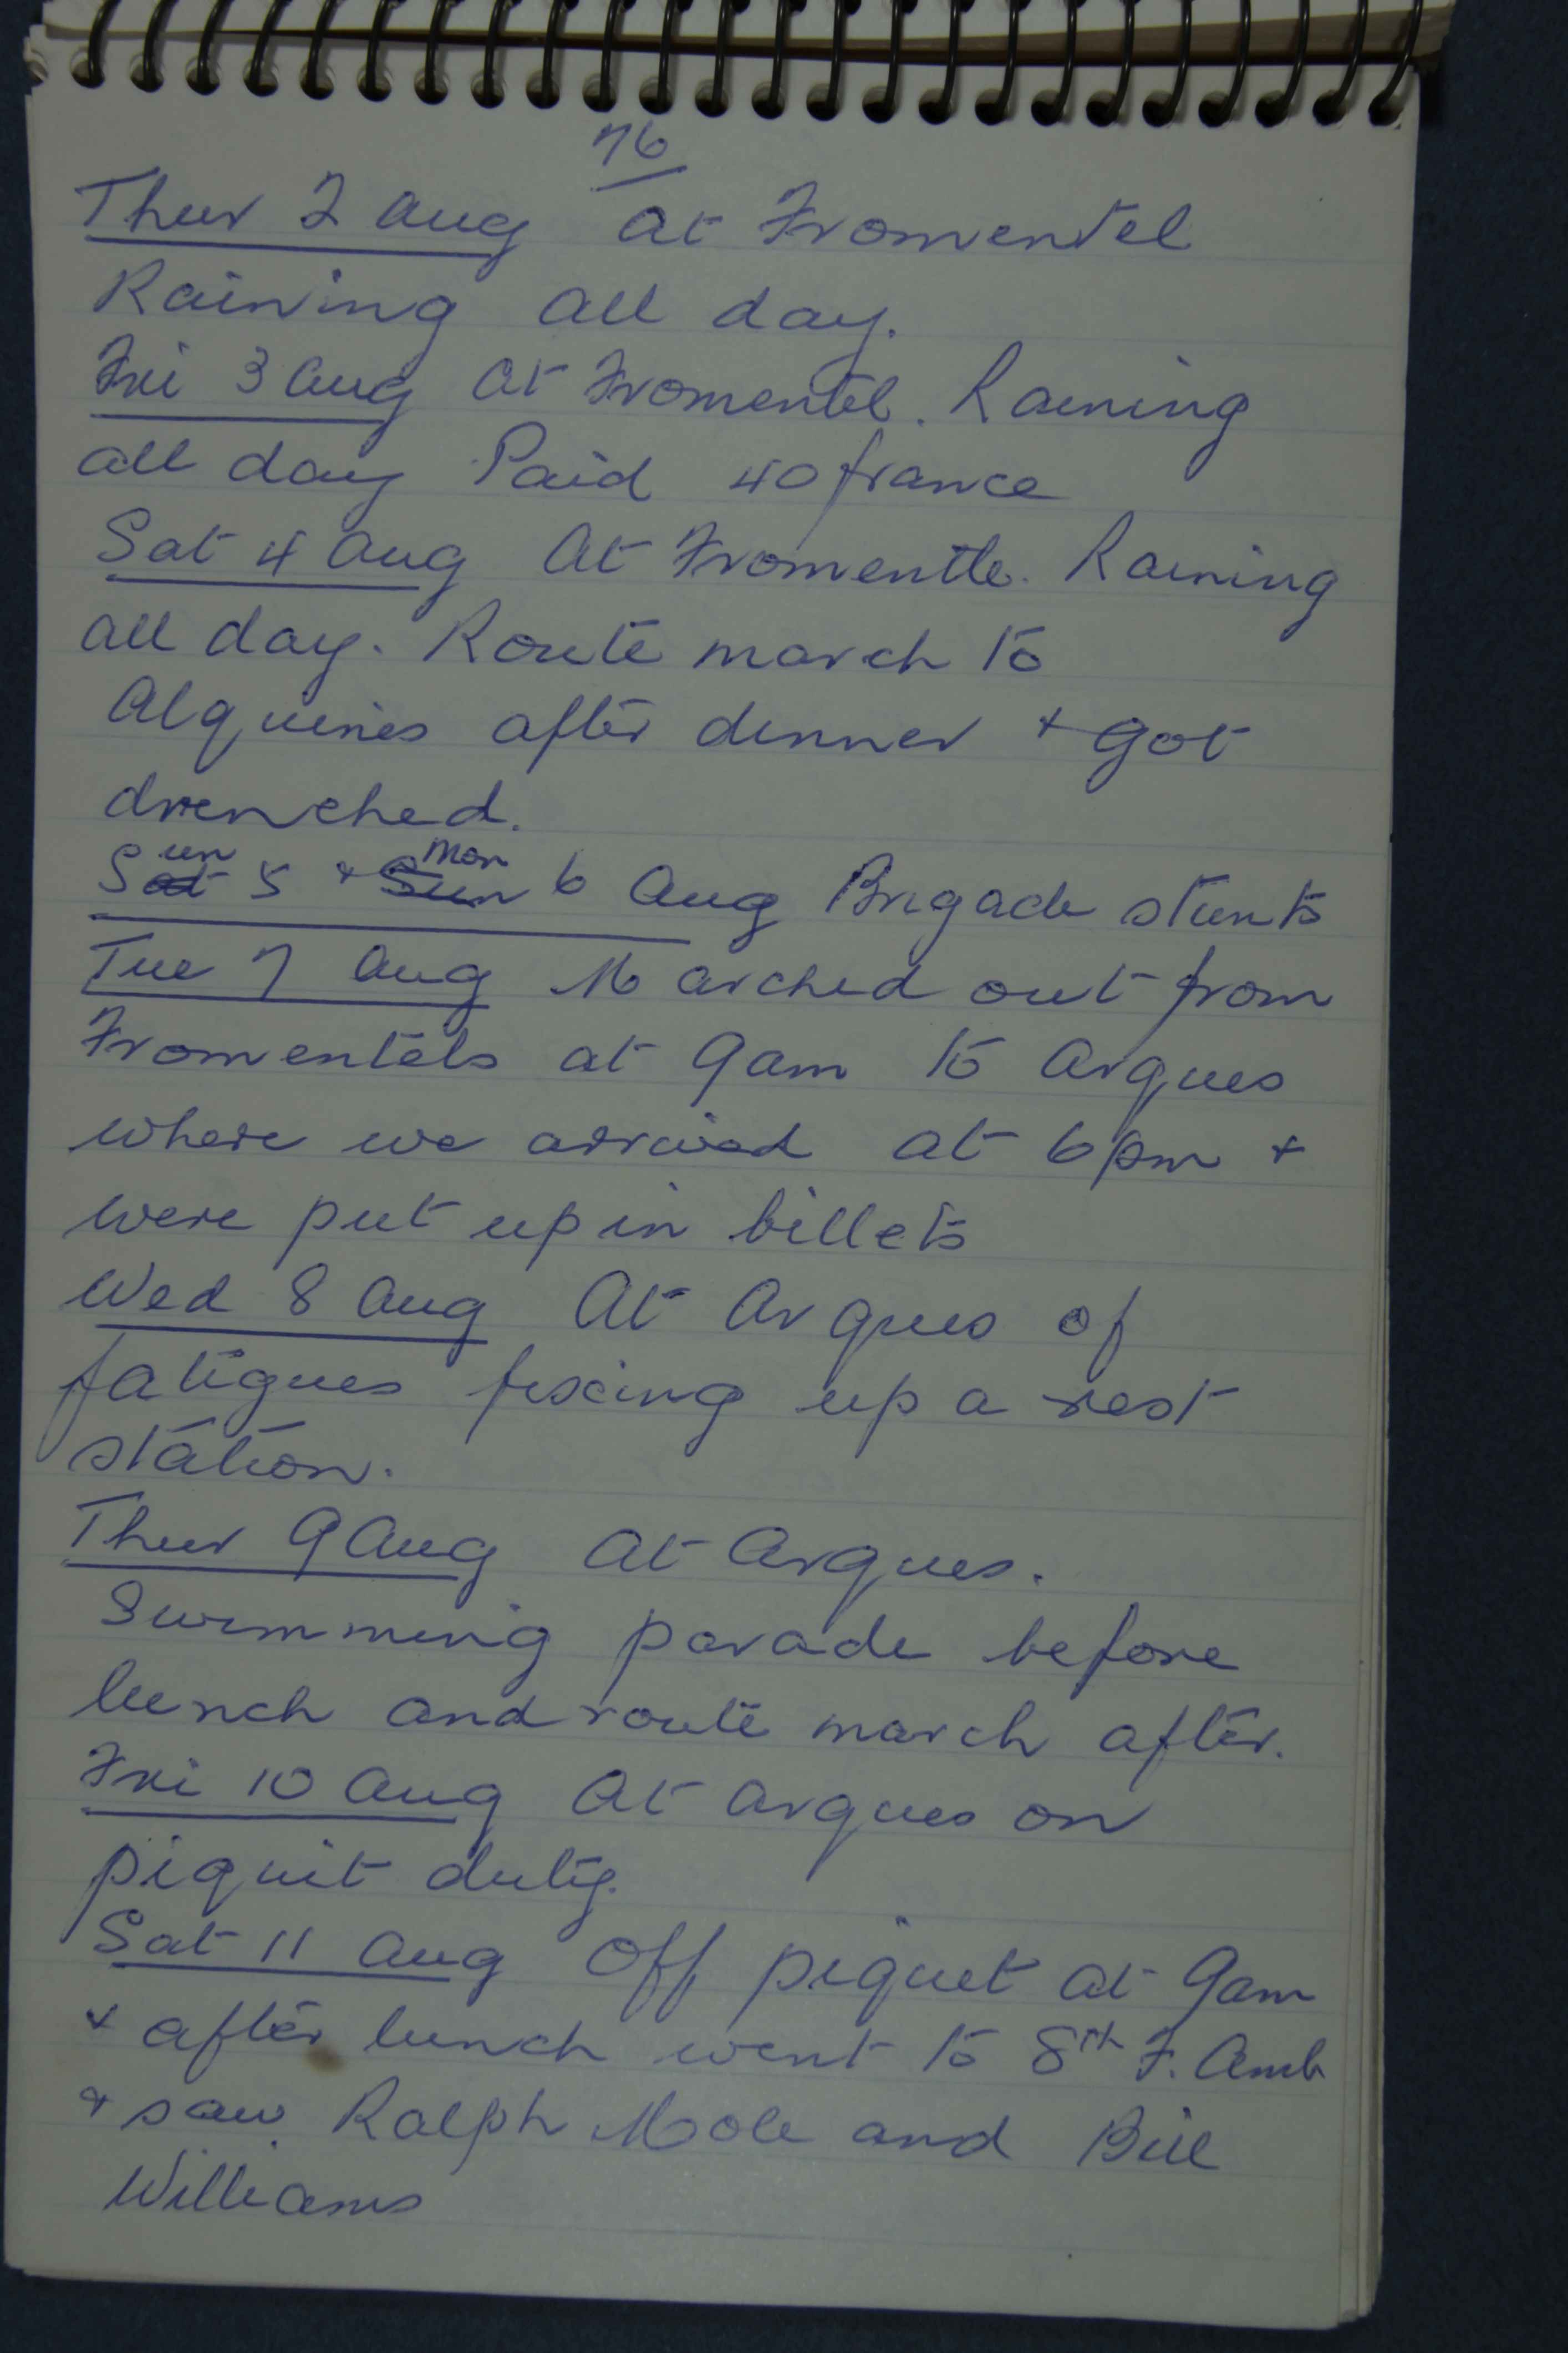 76
Thur 2 Aug at Fromentel
Raining all day.
Fri 3 Aug at Fromentel. Raining
all day Paid 40 france
Sat 4 Aug At Fromentle. Raining
all day. Route march to
Alquines after dinner + got
drenched.
Sat un 5 + Sun Mon 6 Aug Brigade stunts
Tue 7 Aug Marched out from
Fromentels at 9am to Arques
where we arrived at 6pm +
were put up in billets
Wed 8 Aug At Arques of
fatigues fixing up a rest
station.
Thur 9 Aug At Arques.
Swimming parade before
lunch and route march after.
Fri 10 Aug At Arques on
piquit duty.
Sat 11 Aug Off piquet at 9am
+ after lunch went to 8th F. Amb
+ saw Ralph Mole and Bill
Williams